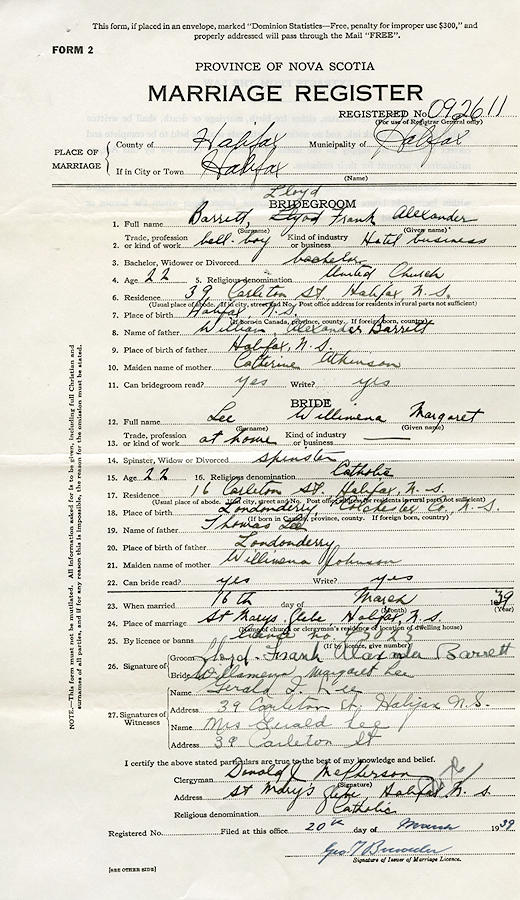 This form, if placed in an envelope, marked "Dominion Statistics—Free, penalty for improper use $300," and
properly addressed will pass through the Mail "FREE".
FORM 2
PROVINCE OF NOVA SCOTIA
MARRIAGE REGISTER
REGISTERED No. 092611
(For use of Registrar General only)
PLACE OF MARRIAGE
County of Halifax Municipality of Halifax
If in City or Town Halifax
(Name)
Lloyd
BRIDEGROOM
1. Full name Barrett, Frank Alexander
(Surname) (Given name)
2. Trade, profession or kind of work bell-boy Kind of industry or business Hotel business
3. Bachelor, Widower or Divorced bachelor
4. Age 22 5. Religious denomination United Church
6. Residence 39 Carleton St. Halifax, N.S.
(Usual place of abode. If in city, street and No. Post office address for residents in rural parts not sufficient)
7. Place of birth Halifax, N.S.
(If born in Canada, province, county. If foreign born, country)
8. Name of father William Alexander Barrett
9. Place of birth of father Halifax, N.S.
10. Maiden name of mother Catherine Atkinson
11. Can bridegroom read? yes Write? yes
BRIDE
12. Full name Lee Willimena Margaret
(Surname) (Given name)
13. Trade, profession or kind of work at home Kind of industry or business —
14. Spinster, Widow or Divorced spinster
15. Age 22 16. Religious denomination Catholic
17. Residence 16 Carleton St, Halifax, N.S.
(Usual place of abode. If in city, street and No. Post office address for residents in rural parts not sufficient)
18. Place of birth Londonderry, Colchester Co., N.S.
(If born in Canada, province, county. If foreign born, country)
19. Name of father Thomas Lee
20. Place of birth of father Londonderry
21. Maiden name of mother Willimena Johnson
22. Can bride read? yes Write? yes
23. When married 16th day of March 1939
(Month) (Year)
24. Place of marriage St Marys Glebe, Halifax, N.S.
(Name of church or clergyman's residence or location of dwelling house)
25. By licence or banns
(If by license, give number)
26. Signature of
Groom Lloyd Frank Alexander Barrett
Bride Willamena Margaret Lee
27. Signatures of Witnesses
Name Gerald J. Lee
Address 39 Carleton St, Halifax N.S.
Name Mrs Gerald Lee
Address 39 Carleton St
I certify the above stated particulars are true to the best of my knowledge and belief.
Clergyman Donald J McPherson
(Signature)
Address St Mary's Glebe, Halifax N.S.
Religious denomination Catholic
Registered No. Filed at this office 20th day of March 1939
Geo T
Signature of Issuer of Marriage Licence.
[SEE OTHER SIDE]
NOTE.—This form must not be mutilated. All information asked for is to be given, including full Christian and
surnames of all parties, and if for any reason this is impossible, the reason for the omission must be stated.